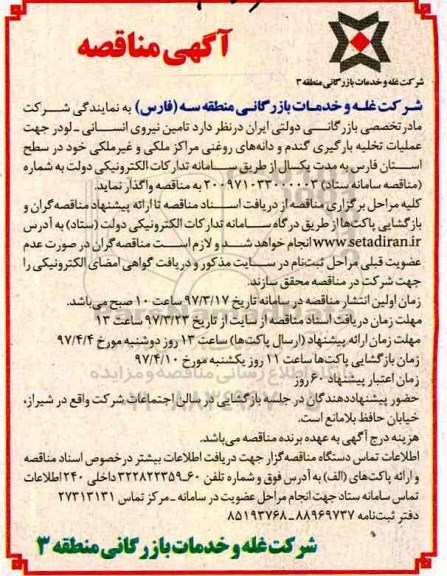 آگهی مناقصه
شرکت غله و خدمات بازرگانی منطقه ۳
شرکت غلـه و خدمـات بازرگانـی منطقه سـه (فارس) به نمایندگی شـرکت
مادرتخصصی بازرگانـــی دولتی ایران درنظر دارد تامین نیروی انسـانی - لودر جهت
عملیات تخلیه بارگیری گندم و دانه‌های روغنی مراکز ملکی و غیرملکی خود در سطح
اسـتان فارس به مدت یکسـال از طریق سـامانه تدارکات الکترونیکی دولت به شماره
(مناقصه سامانه ستاد) ۲۰۰۹۷۱۰۳۳۰۰۰۰۰۳ به مناقصه واگذار نماید.
کلیه مراحل برگزاری مناقصه از دریافت اسـناد مناقصه تا ارائه پیشنهاد مناقصه‌گران و
بازگشایی پاکت‌ها از طریق درگاه سـامانه تدارکات الکترونیکی دولت (ستاد) به آدرس
www.setadiran.ir انجام خواهد شـد و لازم اسـت مناقصه‌گران در صورت عدم
عضویت قبلی مراحل ثبت‌نام در سـایت مذکور و دریافت گواهی امضای الکترونیکی را
جهت شرکت در مناقصه محقق سازند.
زمان اولین انتشار مناقصه در سامانه تاریخ ۹۷/۳/۱۷ ساعت ۱۰ صبح می‌باشد.
مهلت زمان دریافت اسناد مناقصه از سایت از تاریخ ۹۷/۳/۲۳ ساعت ۱۳
مهلت زمان ارائه پیشنهاد (ارسال پاکت‌ها) ساعت ۱۳ روز دوشنبه مورخ ۹۷/۴/۴
زمان بازگشایی پاکت‌ها ساعت ۱۱ روز یکشنبه مورخ ۹۷/۴/۱۰
زمان اعتبار پیشنهاد ۶۰ روز
حضور پیشنهاددهندگان در جلسه بازگشایی در سالن اجتماعات شرکت واقع در شیراز،
خیابان حافظ بلامانع است.
هزینه درج آگهی به عهده برنده مناقصه می‌باشد.
اطلاعات تماس دستگاه مناقصه‌گزار جهت دریافت اطلاعات بیشتر درخصوص اسناد مناقصه
و ارائه پاکت‌های (الف) به آدرس فوق و شماره تلفن ۶۰-۳۲۲۸۲۲۳۵۹ داخلی ۲۴۰ اطلاعات
تماس سامانه ستاد جهت انجام مراحل عضویت در سامانه - مرکز تماس ۲۷۳۱۳۱۳۱
دفتر ثبت‌نامه ۸۸۹۶۹۷۳۷-۸۵۱۹۳۷۶۸
شرکت غله و خدمات بازرگانی منطقه ۳